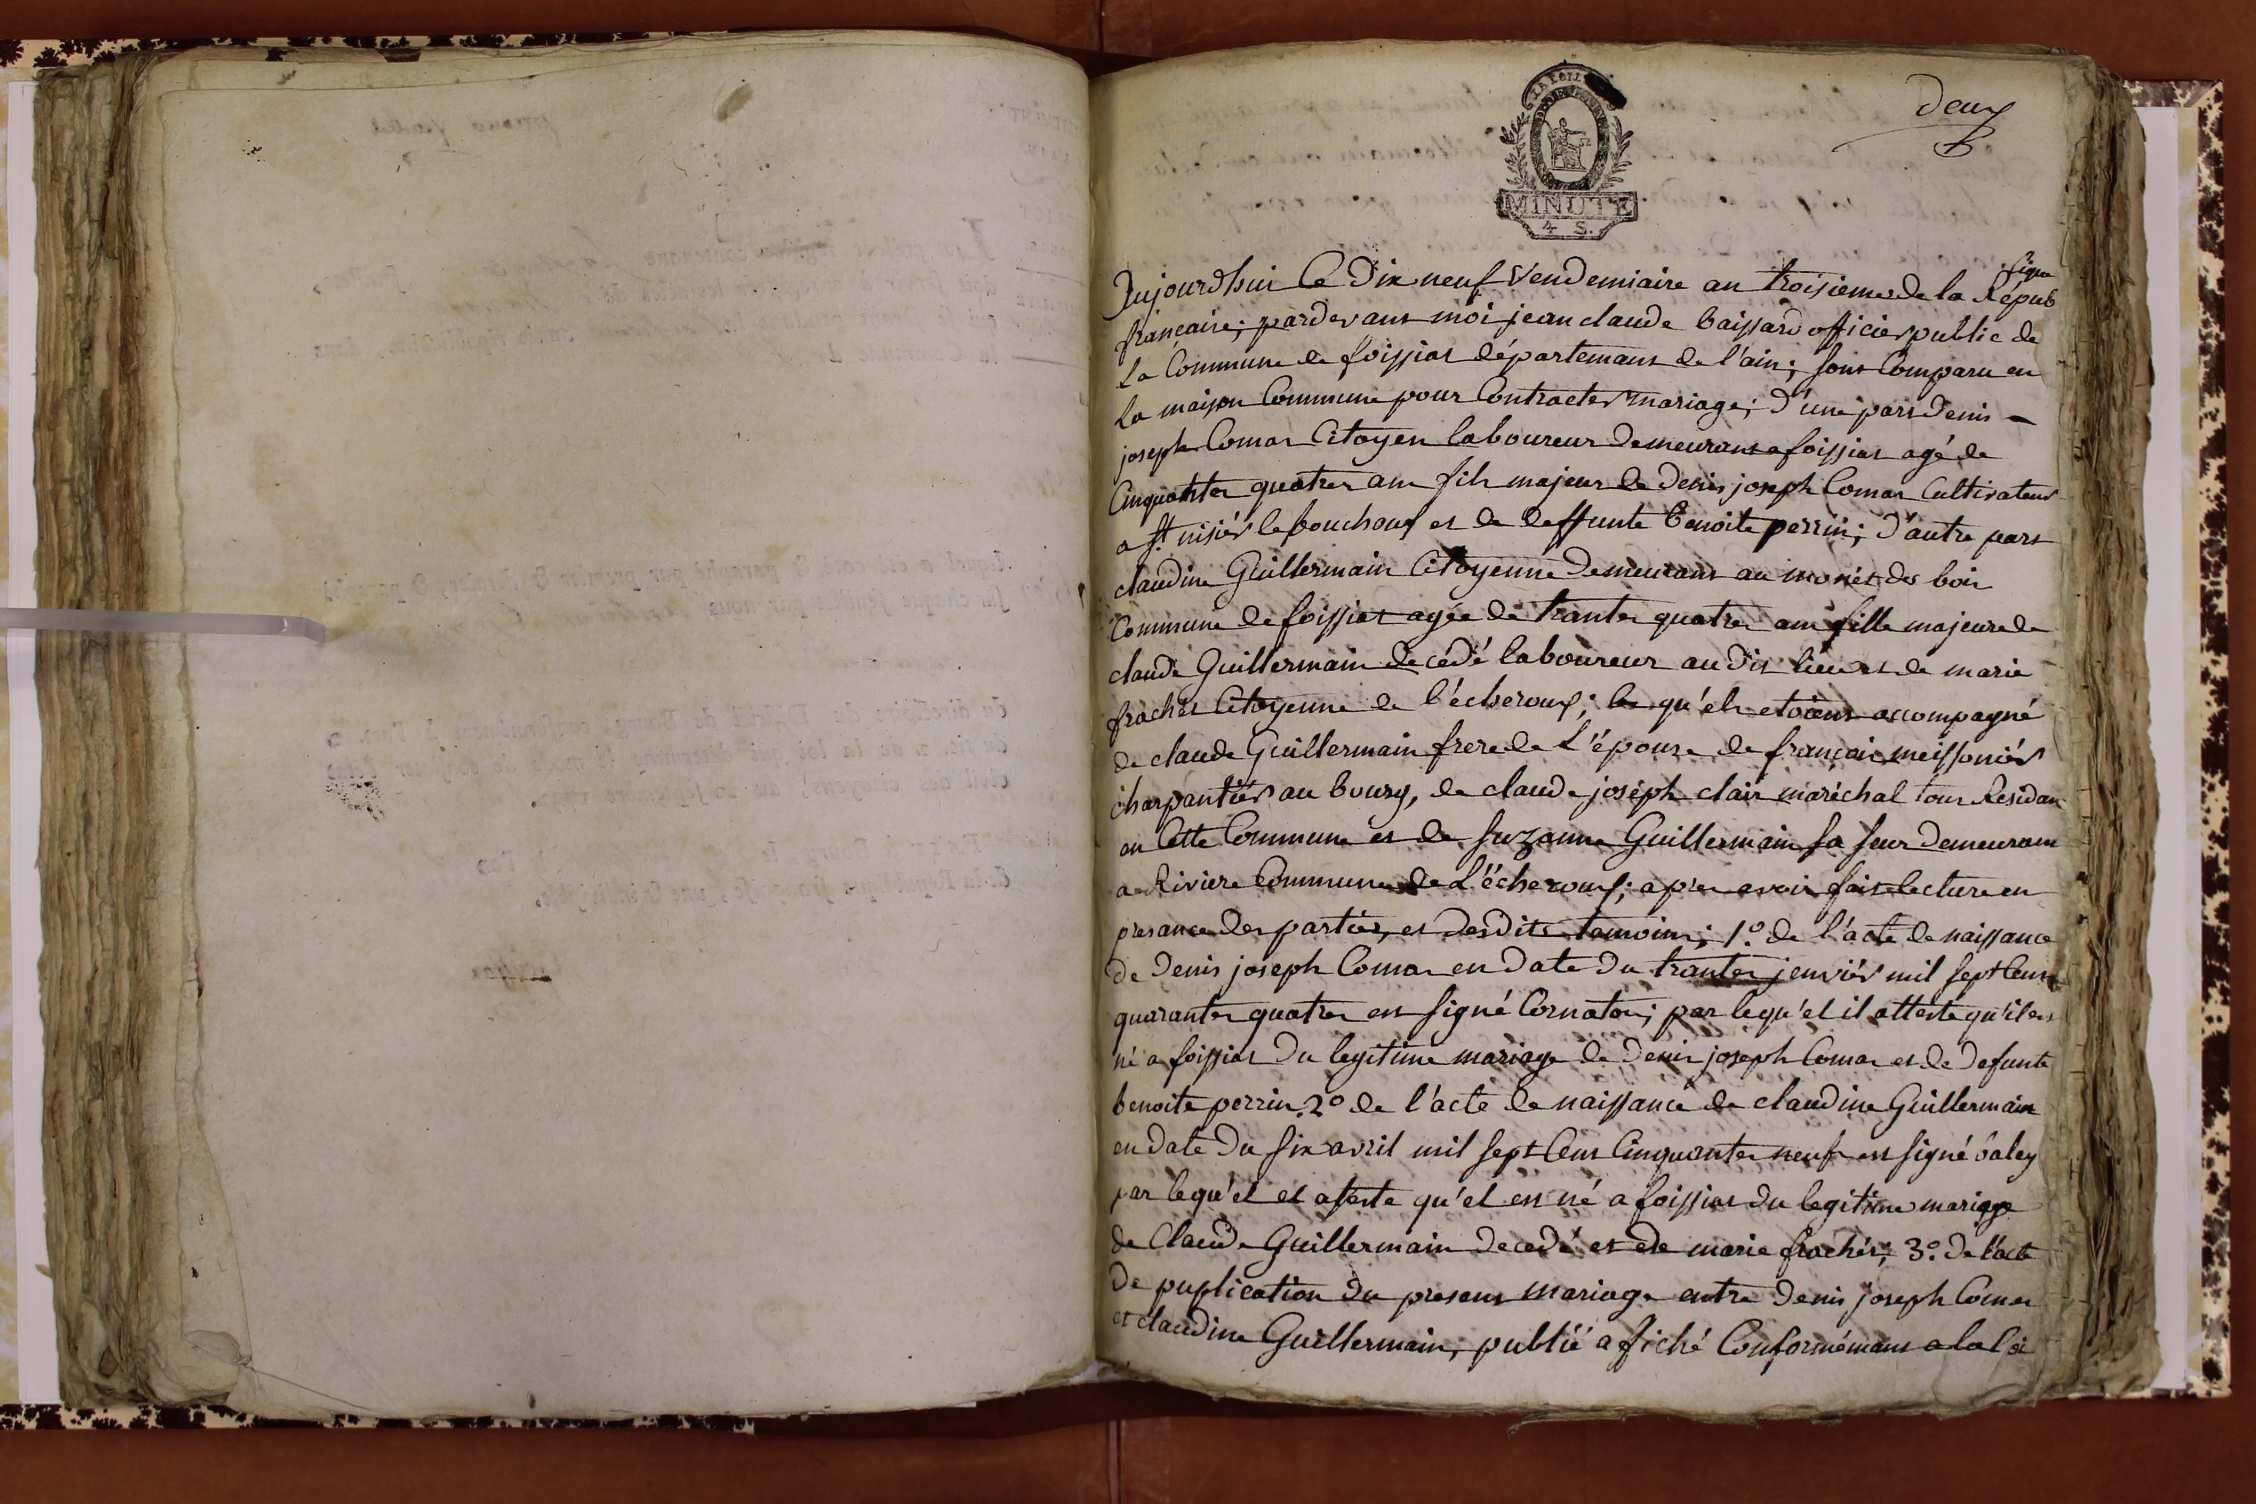 deux
MINUTE
4 S.
Aujourdhui Ce Dix neuf Vendemiaire an troisieme de la Répub
lique
française; pardevant moi jean claude baissard officier public de
La Commune de foissiat départemans de l'ain; sont Comparu en
La maison Commune pour Contracter mariage; d'une part Denis
joseph Comas Citoyen laboureur Demeurant a foissiat agé de
Cinquanter quatre ans fils majeur de Denis joseph Comas Cultivateur
a st nisiér le bouchoux et de deffunte benoite perrin; d'autre part
claudine Guillermain Citoyenne Demeurant au monét des bois
Commune de foissiat agée de tranter quatre ans fille majeure de
claude Guillermain decédé laboureur au dit lieu et de marie
frachet Citoyenne de l'écheroux; les qu'els etoient accompagné
de claude Guillermain frere de L'épouse de françois meissoniér
charpantiér au bourg, de claude joseph clair maréchal tous Residan
en Cette Commune et de suzanne Guillermain sa seur demeurant
a Riviere Commune de L'écheroux; apres avoir fait lecture en
presance des partiés, et desdits temoins; 1.° de l'acte de naissance
de Denis joseph Comas en date du tranter jenviér mil sept Cens
quaranter quatre est signé Cornaton; par lequ'el il atteste qu'il est
né a foissiat du legitime mariage de Denis joseph Comas et de defunte
benoite perrin. 2° de l'acte de naissance de claudine Guillermain
en date du six avril mil sept Cens Cinquanter neuf est signé
par lequ'el el ateste qu'el est né a foissiat du legitime mariage
de Claude Guillermain decedé et de marie frachét; 3.° de l'acte
de puplication du presens mariage entre Denis joseph Comas
et claudine Guillermain; publié afiché Conformémans a la loi